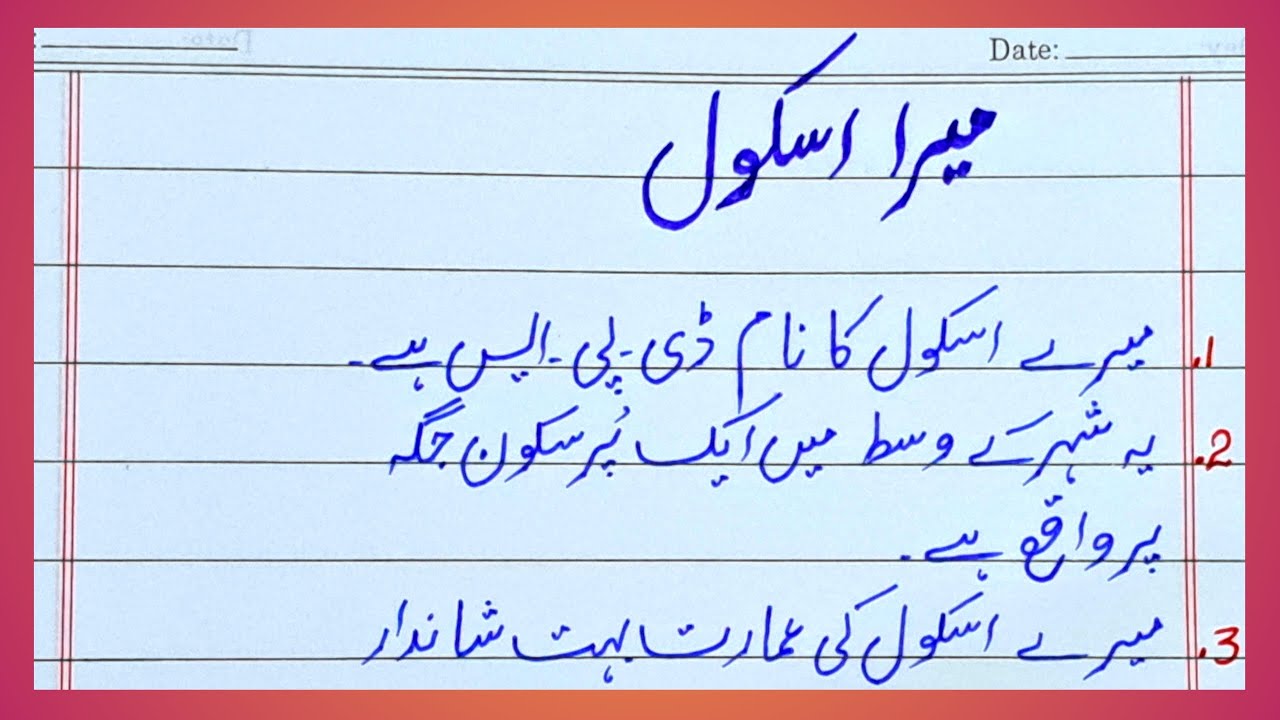 Date:
میرا اسکول
1. میرے اسکول کا نام ڈی۔پی۔ایس ہے۔
2. یہ شہر کے وسط میں ایک پُرسکون جگہ
پر واقع ہے۔
3. میرے اسکول کی عمارت بہت شاندار